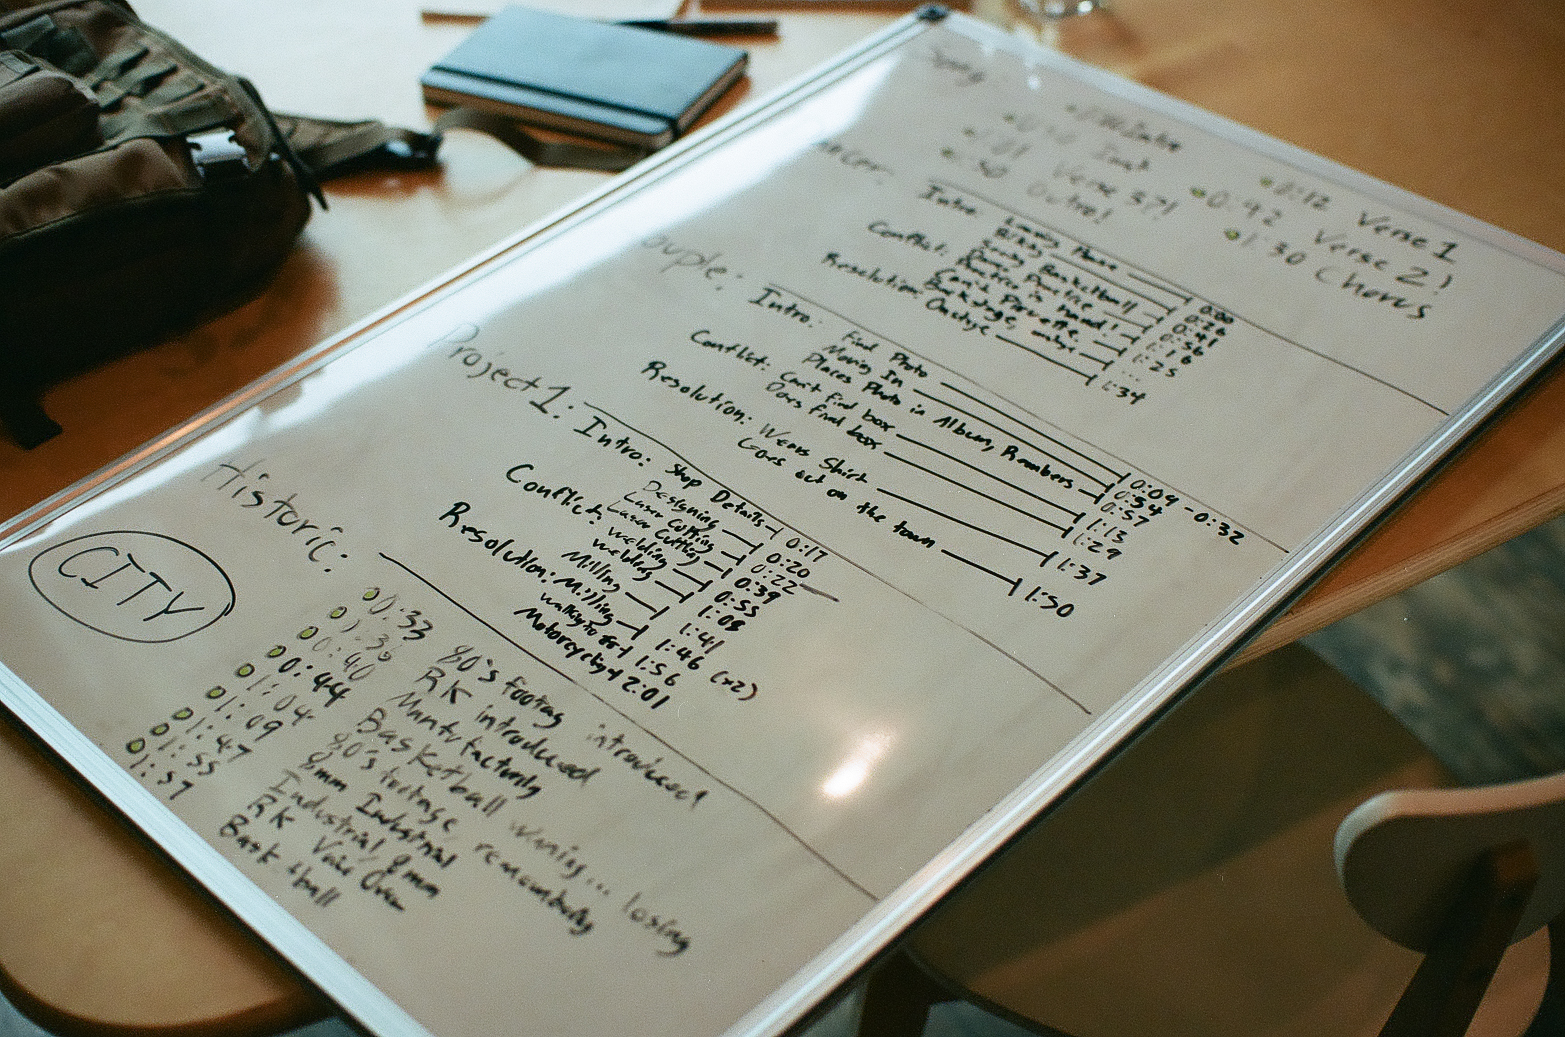 Song:
Intro
0:12 Verse 1
0:42 Verse 2!
1:30 Chorus
Verse 3?!
Outro!
Intro:
Basketball
Conflict:
Practice
Resolution:
Backstage,
Onstage
0:00
0:26
0:41
1:25
...
1:34
Couple:
Intro: Find Photo 0:09 - 0:32
Moving In 0:54
Places Photo in Album, Remembers 0:57
Conflict: Can't find box 1:13
Does find box 1:29
Resolution: Wears Shirt 1:37
Goes out on the town 1:50
Project 1:
Intro: Shop Details 0:17
Designing 0:20
Laser Cutting 0:22
Laser Cutting 0:39
Conflict: Welding 0:55
Welding 1:08
Milling 1:41
Resolution: Milling 1:46 (x2)
1:56
Motorcycle 2:01
Historic:
CITY
0:33 80's footage introduced
RK introduced
0:40 Manufacturing
0:44 Basketball waning... losing
1:04 80's footage remembering
1:09 8mm Industrial
1:47 Industrial 8mm
1:55 RK Voice Over
1:57